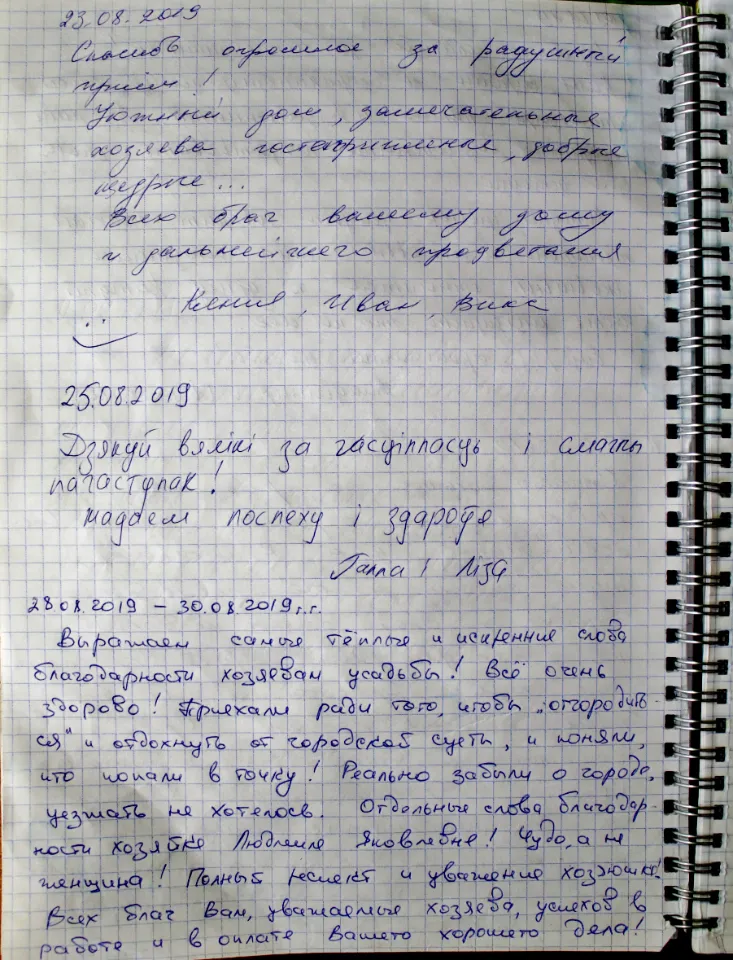 23.08.2019
Спасибо огромное за радушный
приём!
Уютный дом, замечательные
хозяева гостеприимные, добрые
щедрые...
Всех благ вашему дому
и дальнейшего процветания
Ксения, Иван, Вика
25.08.2019
Дзякуй вялікі за гасціннасць і смачны
пачастунак!
Жадаем поспеху і здароўя
Ганна і Ліза
28.08.2019 – 30.08.2019 г.г.
Выражаем самые тёплые и искренние слова
благодарности хозяевам усадьбы! Всё очень
здорово! Приехали ради того, чтобы „отгородить-
ся“ и отдохнуть от городской суеты, и поняли,
что попали в точку! Реально забыли о городе,
уезжать не хотелось. Отдельные слова благодар-
ности хозяйке Людмиле Яковлевне! Чудо, а не
женщина! Полный респект и уважение хозяюшке!
Всех благ Вам, уважаемые хозяева, успехов в
работе и в оплате Вашего хорошего дела!